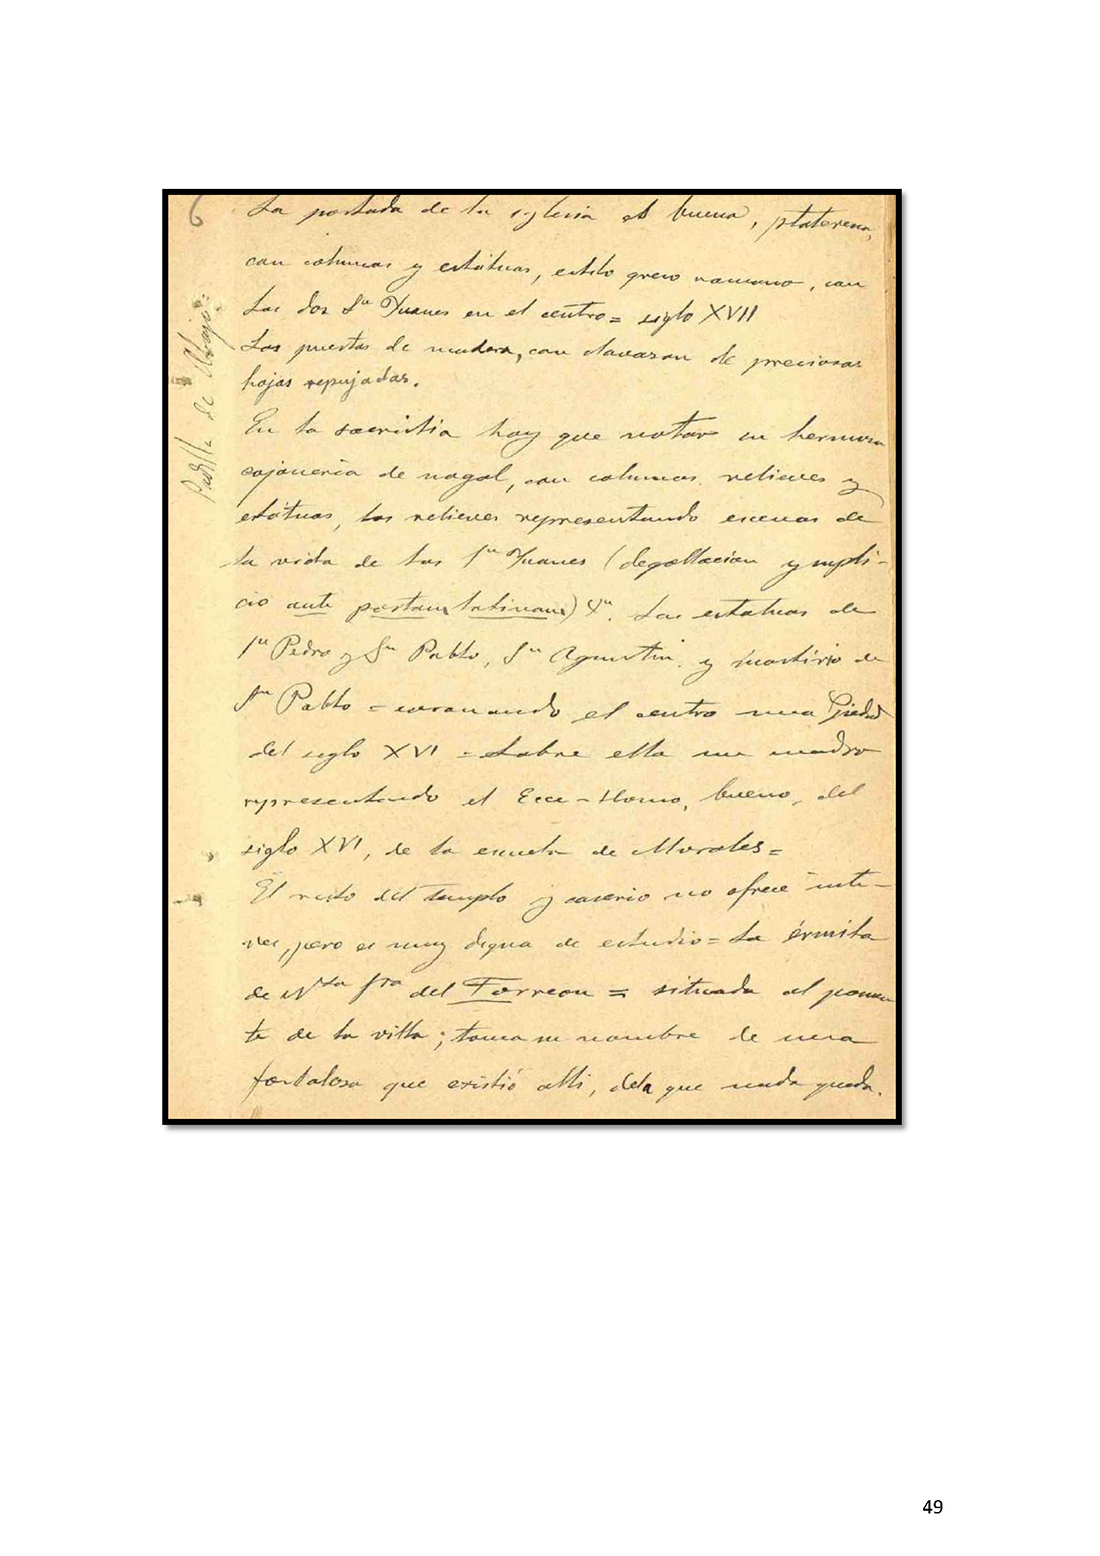 6
Padilla de Abajo=
La portada de la iglesia es buena, plateresca,
con columnas y estátuas, estilo greco romano, con
los dos Sn Juanes en el centro= siglo XVII
Las puertas de madera, con clavazon de preciosas
hojas repujadas.
En la sacristia hay que notar su hermosa
cajoneria de nogal, con columnas, relieves y
estátuas, los relieves representando escenas de
la vida de los Sn Juanes (degollacion y supli-
cio ante portam latinam) Xa. Las estatuas de
Sn Pedro y Sn Pablo, Sn Agustin, y martirio de
Sn Pablo = coronando el centro una Piedad
del siglo XVI = Sobre ella un cuadro
representando el Ecce-Homo, bueno, del
siglo XVI, de la escuela de Morales=
El resto del templo y caserio no ofrece inte-
res, pero es muy digna de estudio= La érmita
de Ntra Sra del Torreon = situada al ponien
te de la villa; toma su nombre de una
fortaleza que existió alli, dela que nada queda.
49